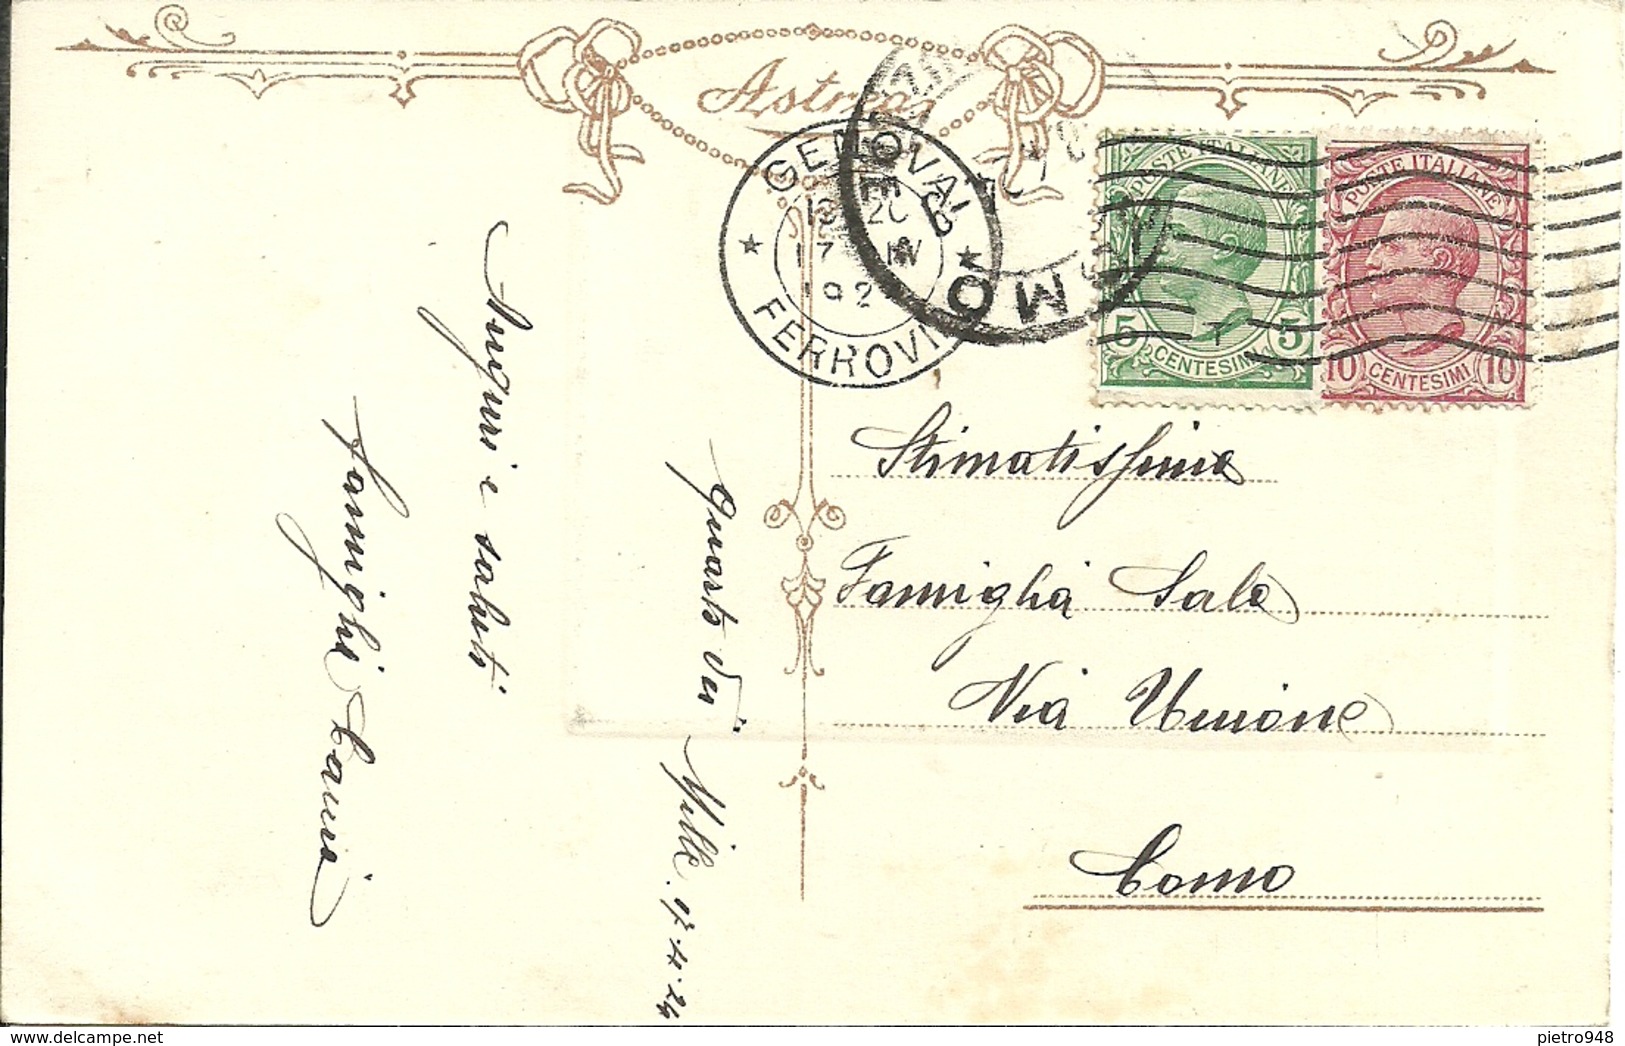 Astrea
GENOVA
FERROVIA
19 20
17 IV
192
COMO
POSTE ITALIANE
5 CENTESIMI 5
POSTE ITALIANE
10 CENTESIMI 10
Auguri e saluti
famighi
Quarto dei Mille. 17.4.24
Stimatissima
Famiglia Sala
Via Unione
Como
delcampe.net
pietro948